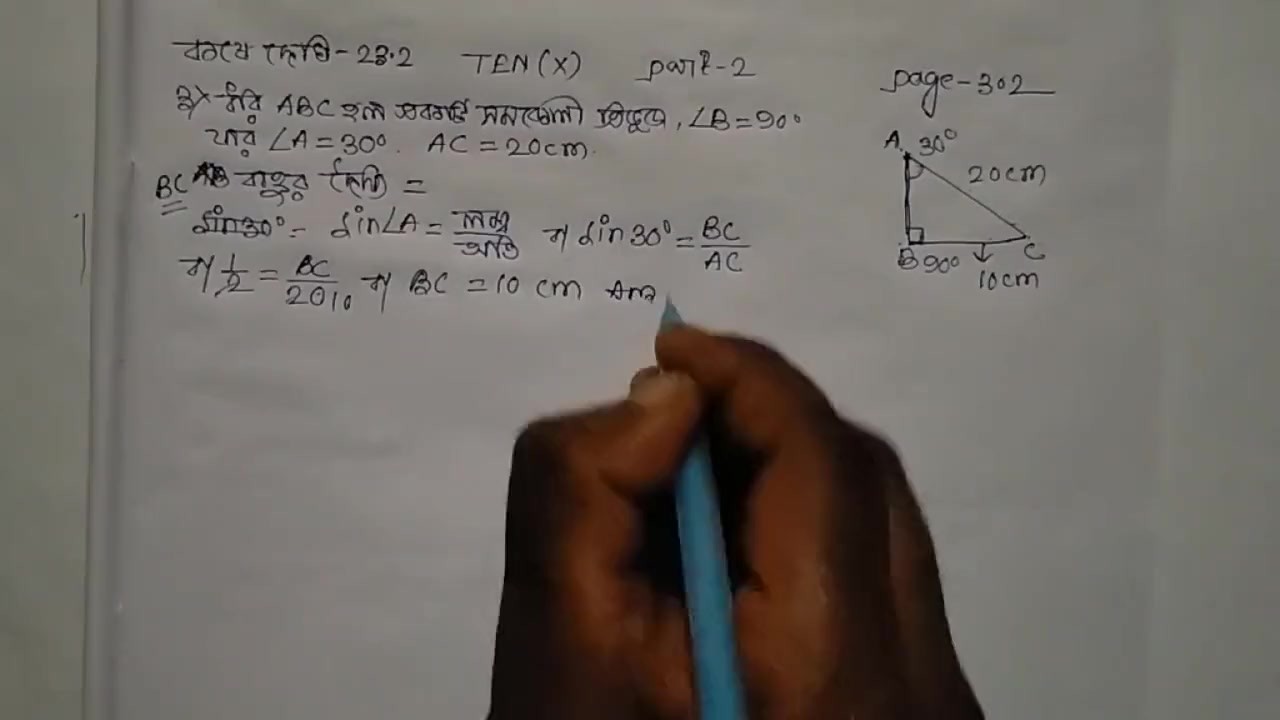 কষে দেখি-23.2 TEN (X) part-2
page-302
ABC হল একটি সমকোণী ত্রিভুজ, ∠B=90°
যার ∠A=30°. AC=20cm.
BC বাহুর দৈর্ঘ্য =
sin30°= sin∠A = লম্ব/অতি ⇒ sin30° = BC/AC
⇒ 1/2 = BC/20 10 ⇒ BC = 10 cm Ans
A 30°
20cm
B 90° C
10cm